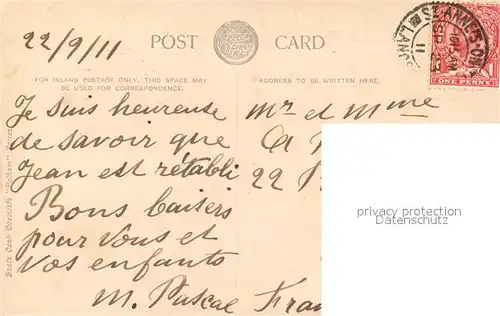 22/9/11
POST CARD
FOR INLAND POSTAGE ONLY, THIS SPACE MAY
BE USED FOR CORRESPONDENCE.
ADDRESS TO BE WRITTEN HERE.
ONE PENNY
Je suis heureuse
de savoir que
Jean est rétabli
Bons baisers
pour vous et
vos enfants
M. Pascal
Mr et Mme
22
privacy protection
watermark
Boots Cash Chemists "Pelham" Series